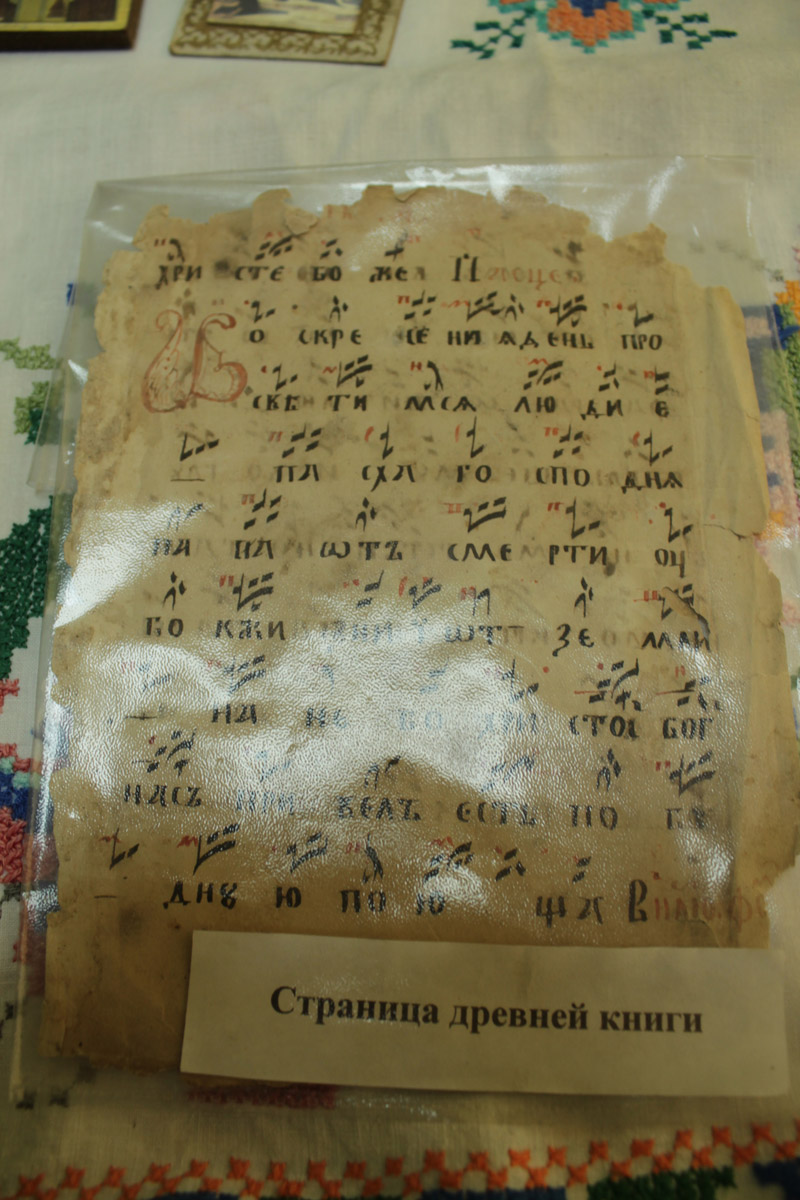 хри сте бо же
Во скре се ни ѧ день про
свѣ ти мсѧ лю ди е
па сха го спо днѧ
па па ѿтъ сме рти оу
бо кжи зни ѿт зе мли
на не бо хри стос бог
насъ при велъ естъ по бѣ
дну ю по ю ща
Страница древней книги